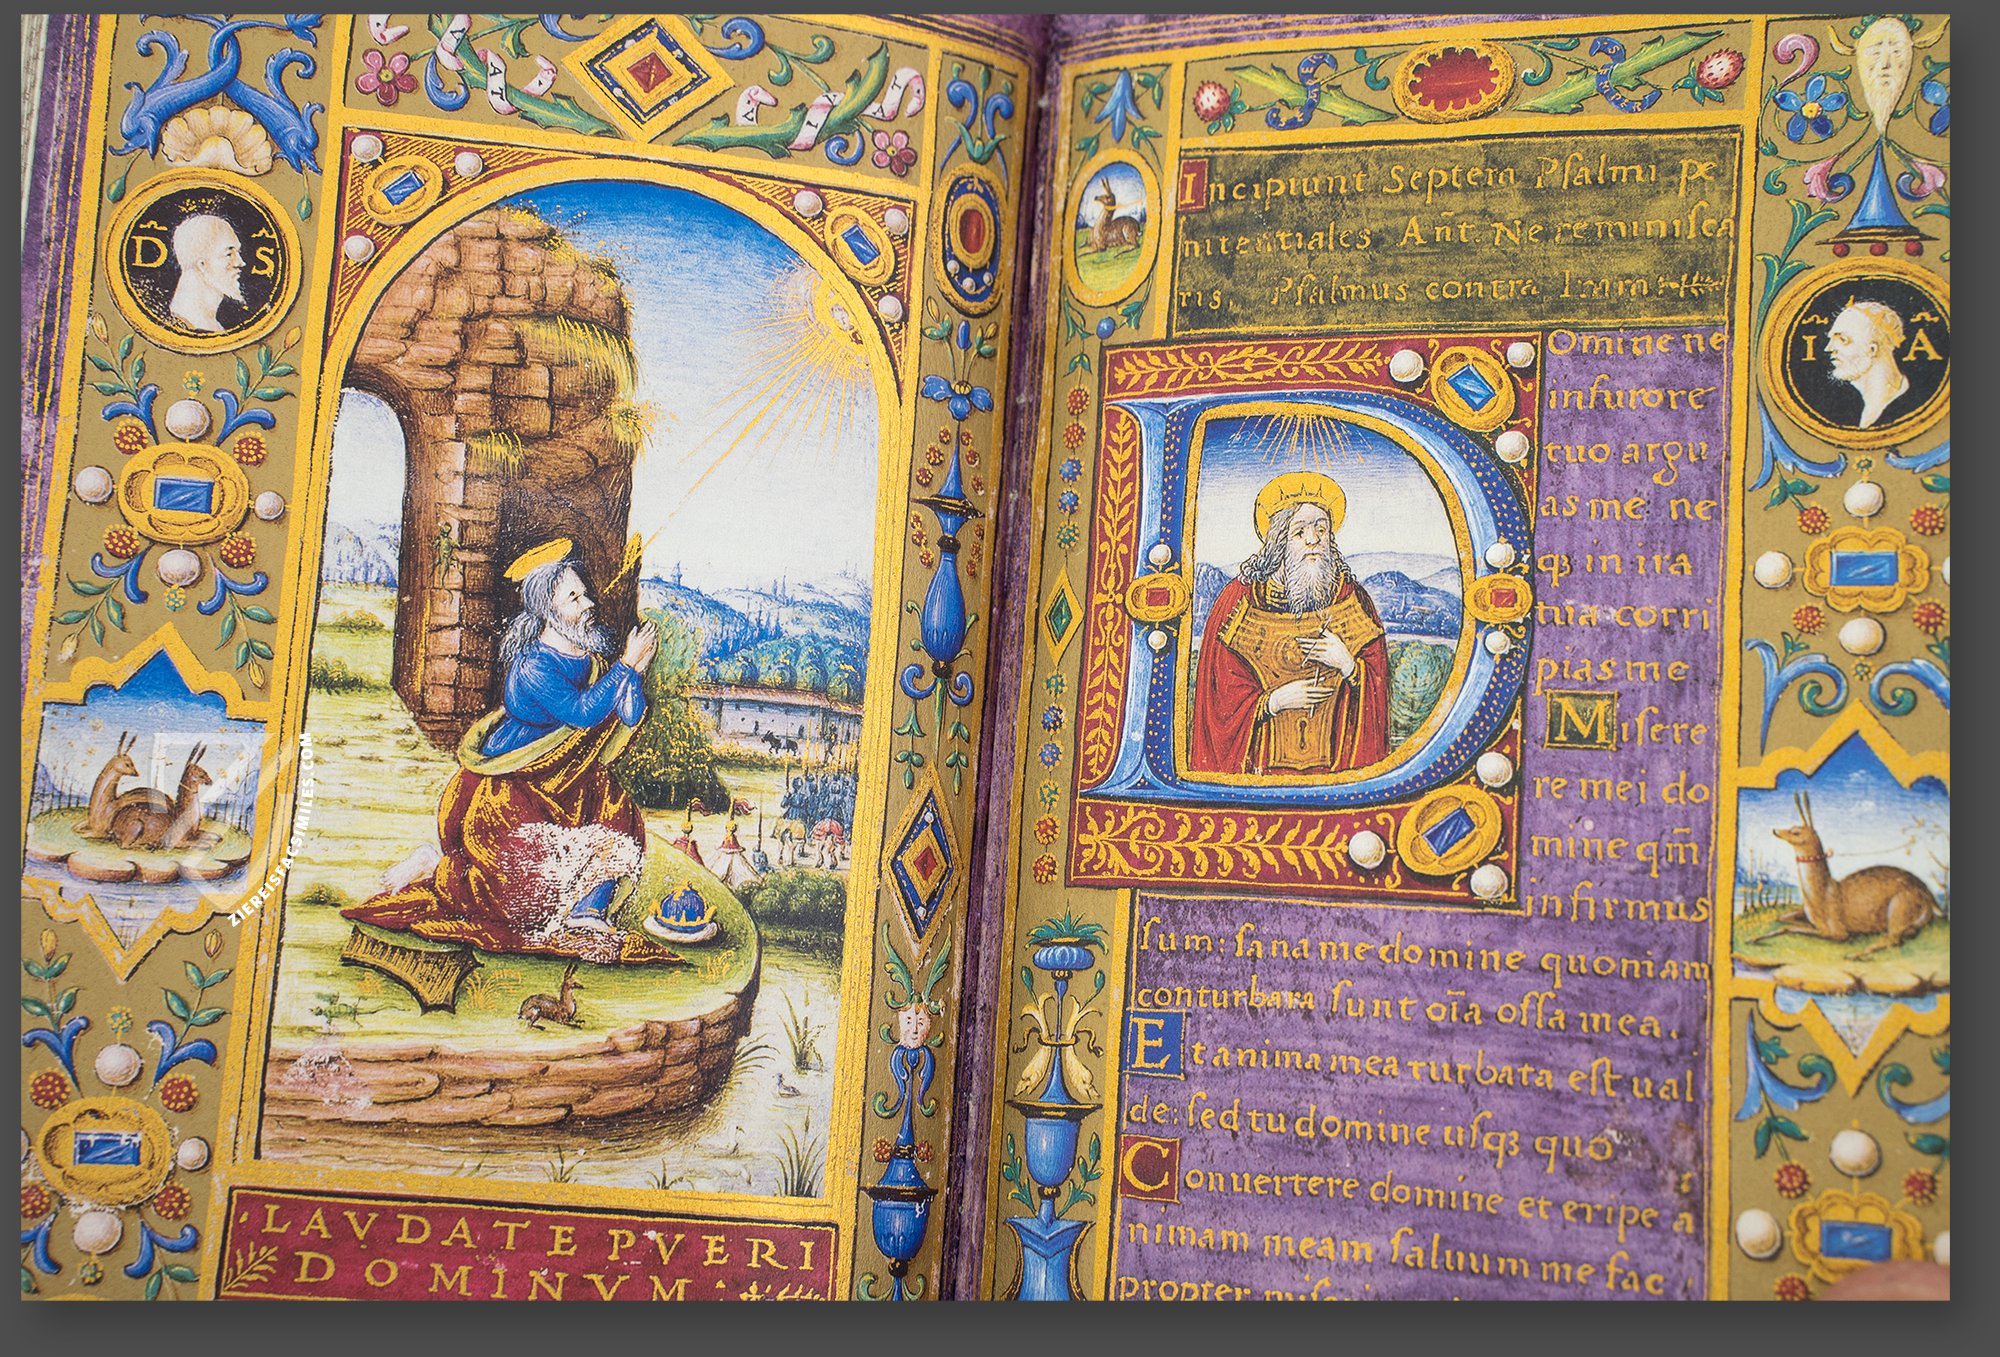 D S
LAVDATE PVERI
DOMINVM
SEMPER
Incipiunt Septem Psalmi pe
nitentiales Añt. Ne reminisca
ris. Psalmus contra Iram:
I A
Domine ne
in furore
tuo argu
as me ne
qꝫ in ira
tua corri
pias me
Misere
re mei do
mine qm̄
infirmus
sum: sana me domine quoniam
conturbata sunt oīa ossa mea.
Et anima mea turbata est ual
de: sed tu domine usqꝫ quo
Conuertere domine et eripe a
nimam meam saluum me fac
propter
ZIEREISFACSIMILES.COM